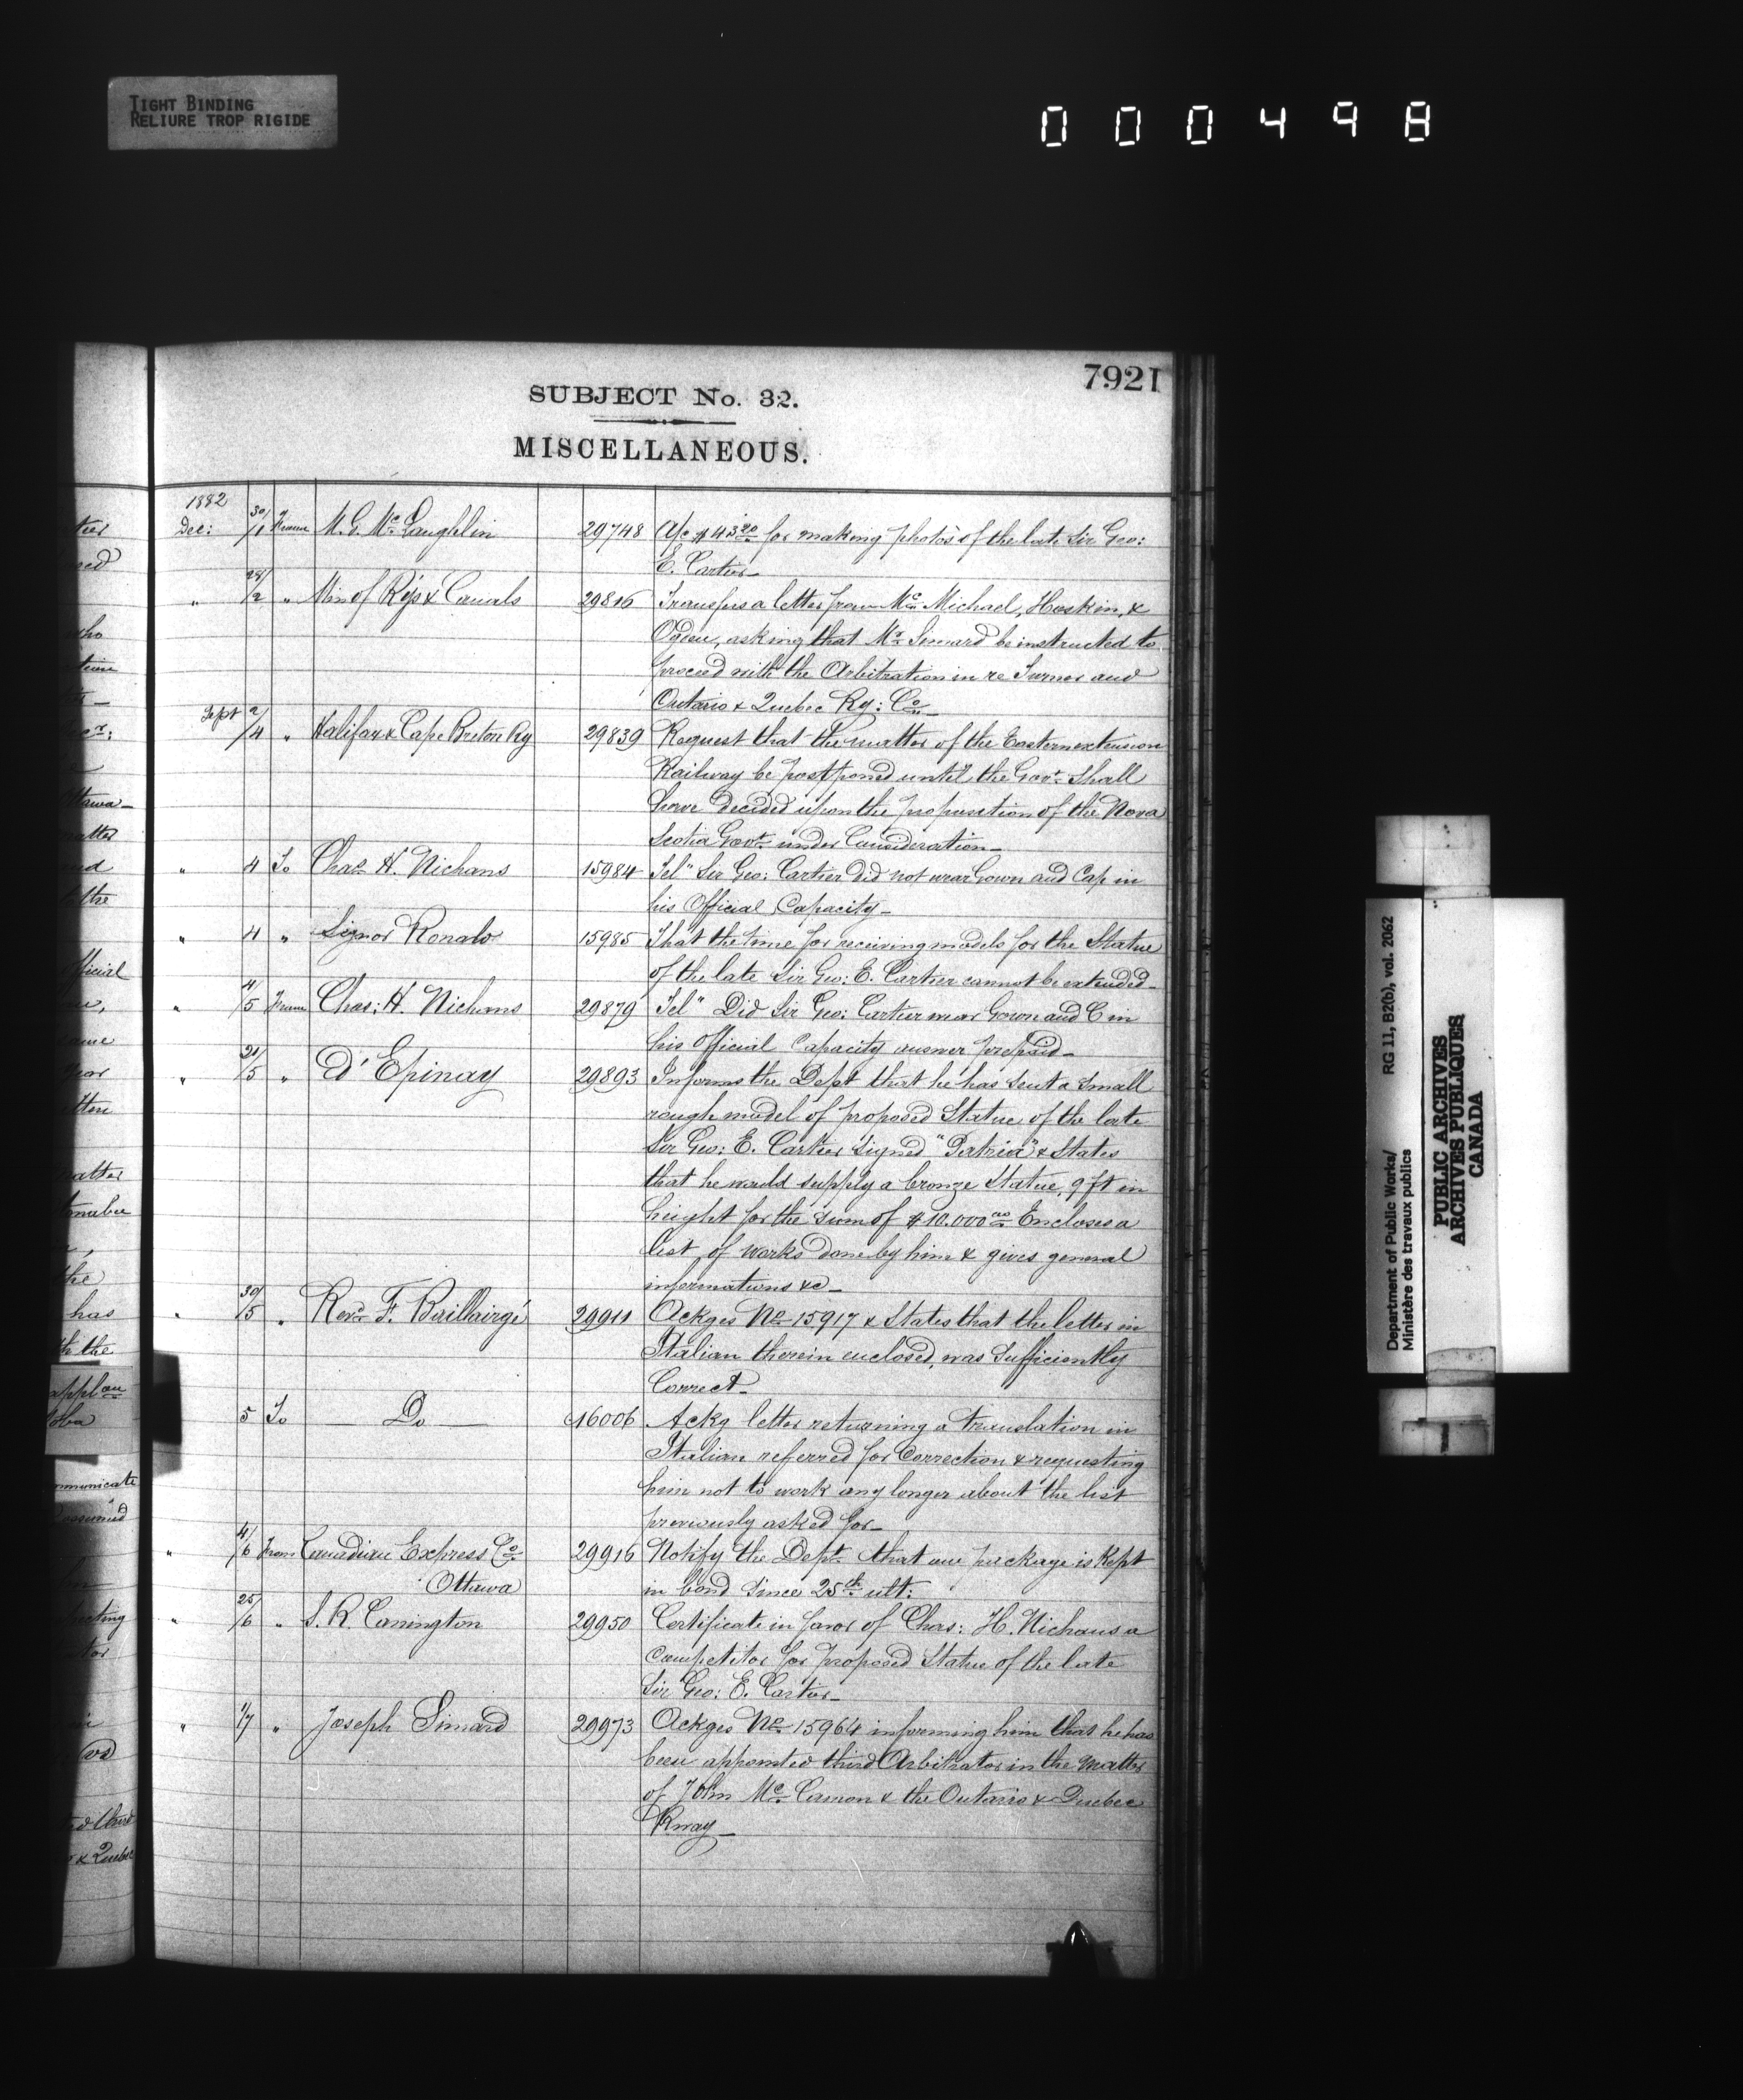 TIGHT BINDING
RELIURE TROP RIGIDE
000498
7921
SUBJECT No. 32.
MISCELLANEOUS.
1882
Dec: 30/1 From M. G. McLaughlin 29748 A/c $43.20 for making photos of the late Sir Geo:
E. Cartier
" 28/2 " Min of Rys & Canals 29816 Transfers a letter from McMichael, Hoskin, &
Ogden, asking that Mr Simard be instructed to
proceed with the Arbitration in re Turner and
Ontario & Quebec Ry: Co
Sept 2/4 " Halifax & Cape Breton Ry 29839 Request that the matter of the Eastern extension
Railway be postponed until the Govt shall
have decided upon the proposition of the Nova
Scotia Govt under Consideration
" 4 To Chas H. Niehans 15984 Tel" Sir Geo: Cartier did not wear Gown and Cap in
his Official Capacity
" 4 " Signor Ronalo 15985 That the time for receiving models for the Statue
of the late Sir Geo: E. Cartier cannot be extended
" 4/5 From Chas: H. Niehans 29879 Tel" Did Sir Geo: Cartier wear Gown and C in
his Official Capacity answer prepaid
" 21/5 " D'Epinay 29893 Informs the Dept that he has sent a small
rough model of proposed Statue of the late
Sir Geo: E. Cartier signed "Patria" & States
that he would supply a bronze Statue, 9 ft in
height for the sum of $10.000 00 Encloses a
list of works done by him & gives general
informations &c
" 30/5 " Revd F. Baillairgé 29911 Ackges No 15917 & States that the letter in
Italian therein enclosed, was sufficiently
Correct
5 To Do 16006 Ackg letter returning a translation in
Italian referred for Correction & requesting
him not to work any longer about the list
previously asked for
" 4/6 From Canadian Express Co 29916 Notify the Dept that one package is Kept
Ottawa in bond since 25th ult:
" 25/6 " S. R. Canington 29950 Certificate in favor of Chas: H. Niehaus a
Competitor for proposed Statue of the late
Sir Geo: E. Cartier
" 1/7 " Joseph Simard 29973 Ackges No 15964 informing him that he has
been appointed third Arbitrator in the matter
of John McCamon & the Ontario & Quebec
Rway
Department of Public Works/ RG 11, B2(b), vol. 2062
Ministère des travaux publics
PUBLIC ARCHIVES
ARCHIVES PUBLIQUES
CANADA